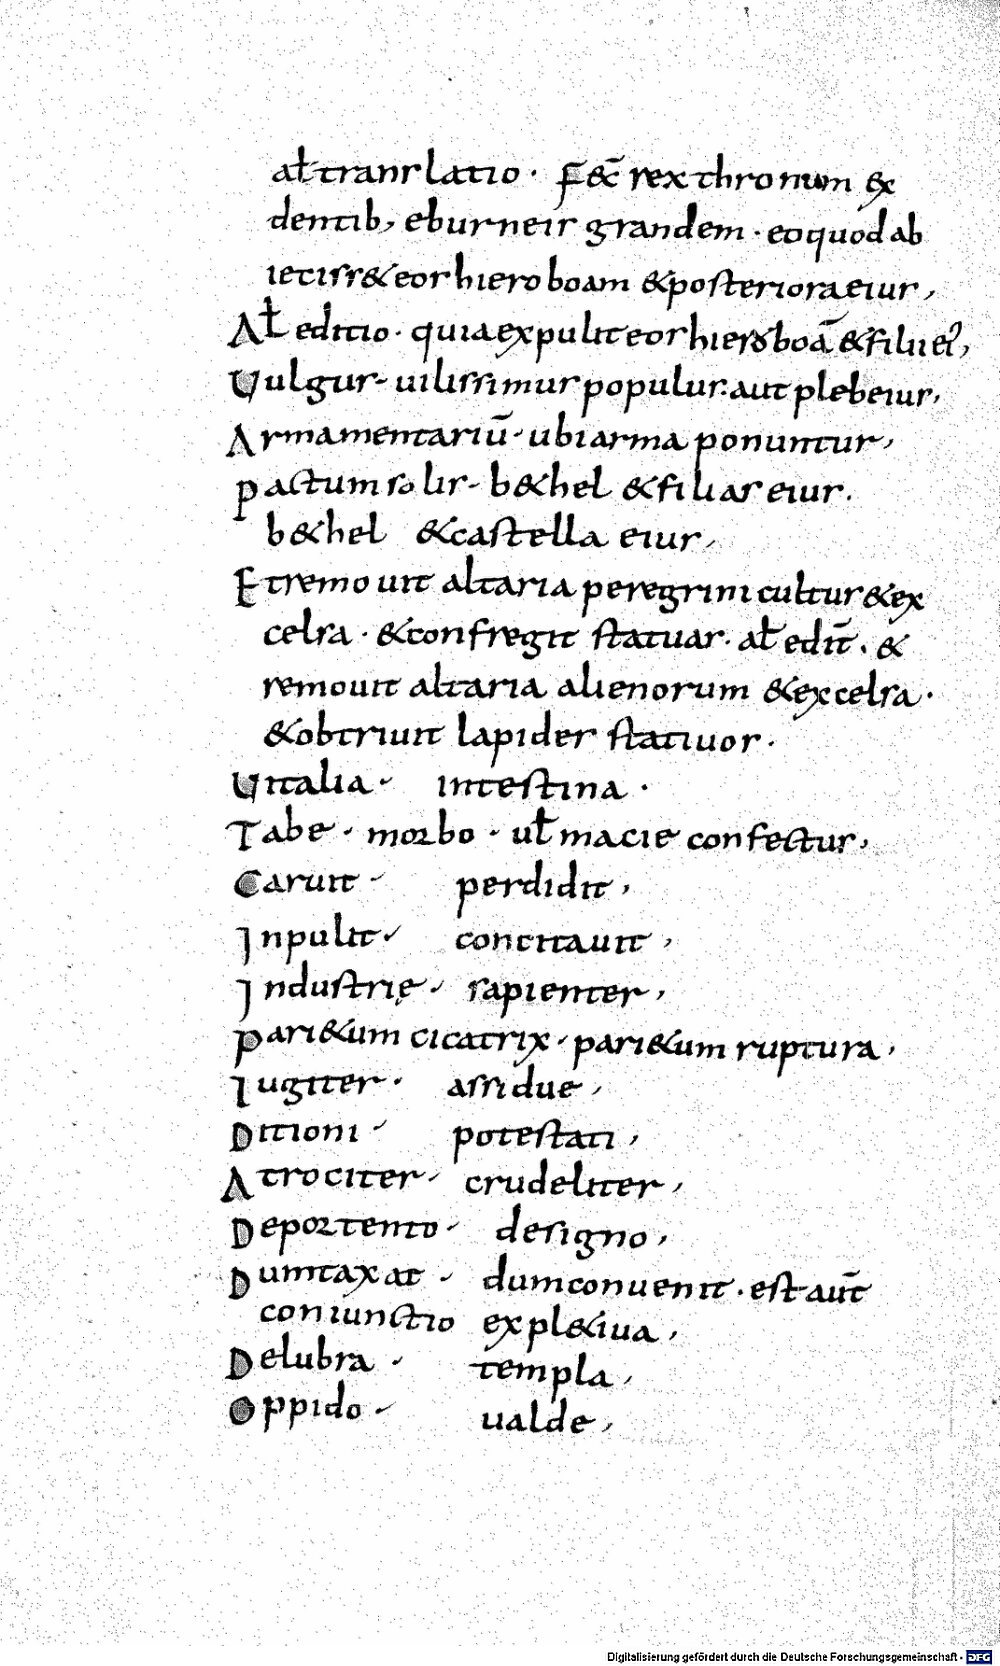 aƚ translatio · Fec̄ rex thronum ex
dentib, eburneis grandem · eo quod ab
iecisset eos hieroboam & posteriora eius,
Aƚ editio · quia expulit eos hieroboā & filii ei',
Uulgus · uilissimus populus · aut plebeius,
Armamentariū · ubi arma ponuntur,
Pactum solis · bethel & filias eius.
bethel & castella eius,
Et remouit altaria peregrini cultus & ex
celsa · & confregit statuas · aƚ edit̄ · &
remouit altaria alienorum & excelsa ·
& obtriuit lapides statiuos ·
Uitalia · intestina ·
Tabe · morbo · uƚ macie confectus,
Caruit · perdidit,
Inpulit · concitauit,
Industrię · sapienter,
Parietum cicatrix · parietum ruptura,
Iugiter · assidue,
Ditioni · potestati,
Atrociter · crudeliter,
Deportento · designo,
Dumtaxat · dum conuenit · est aut̄
coniunctio expletiua,
Delubra · templa,
Oppido · ualde,
Digitalisierung gefördert durch die Deutsche Forschungsgemeinschaft - DFG